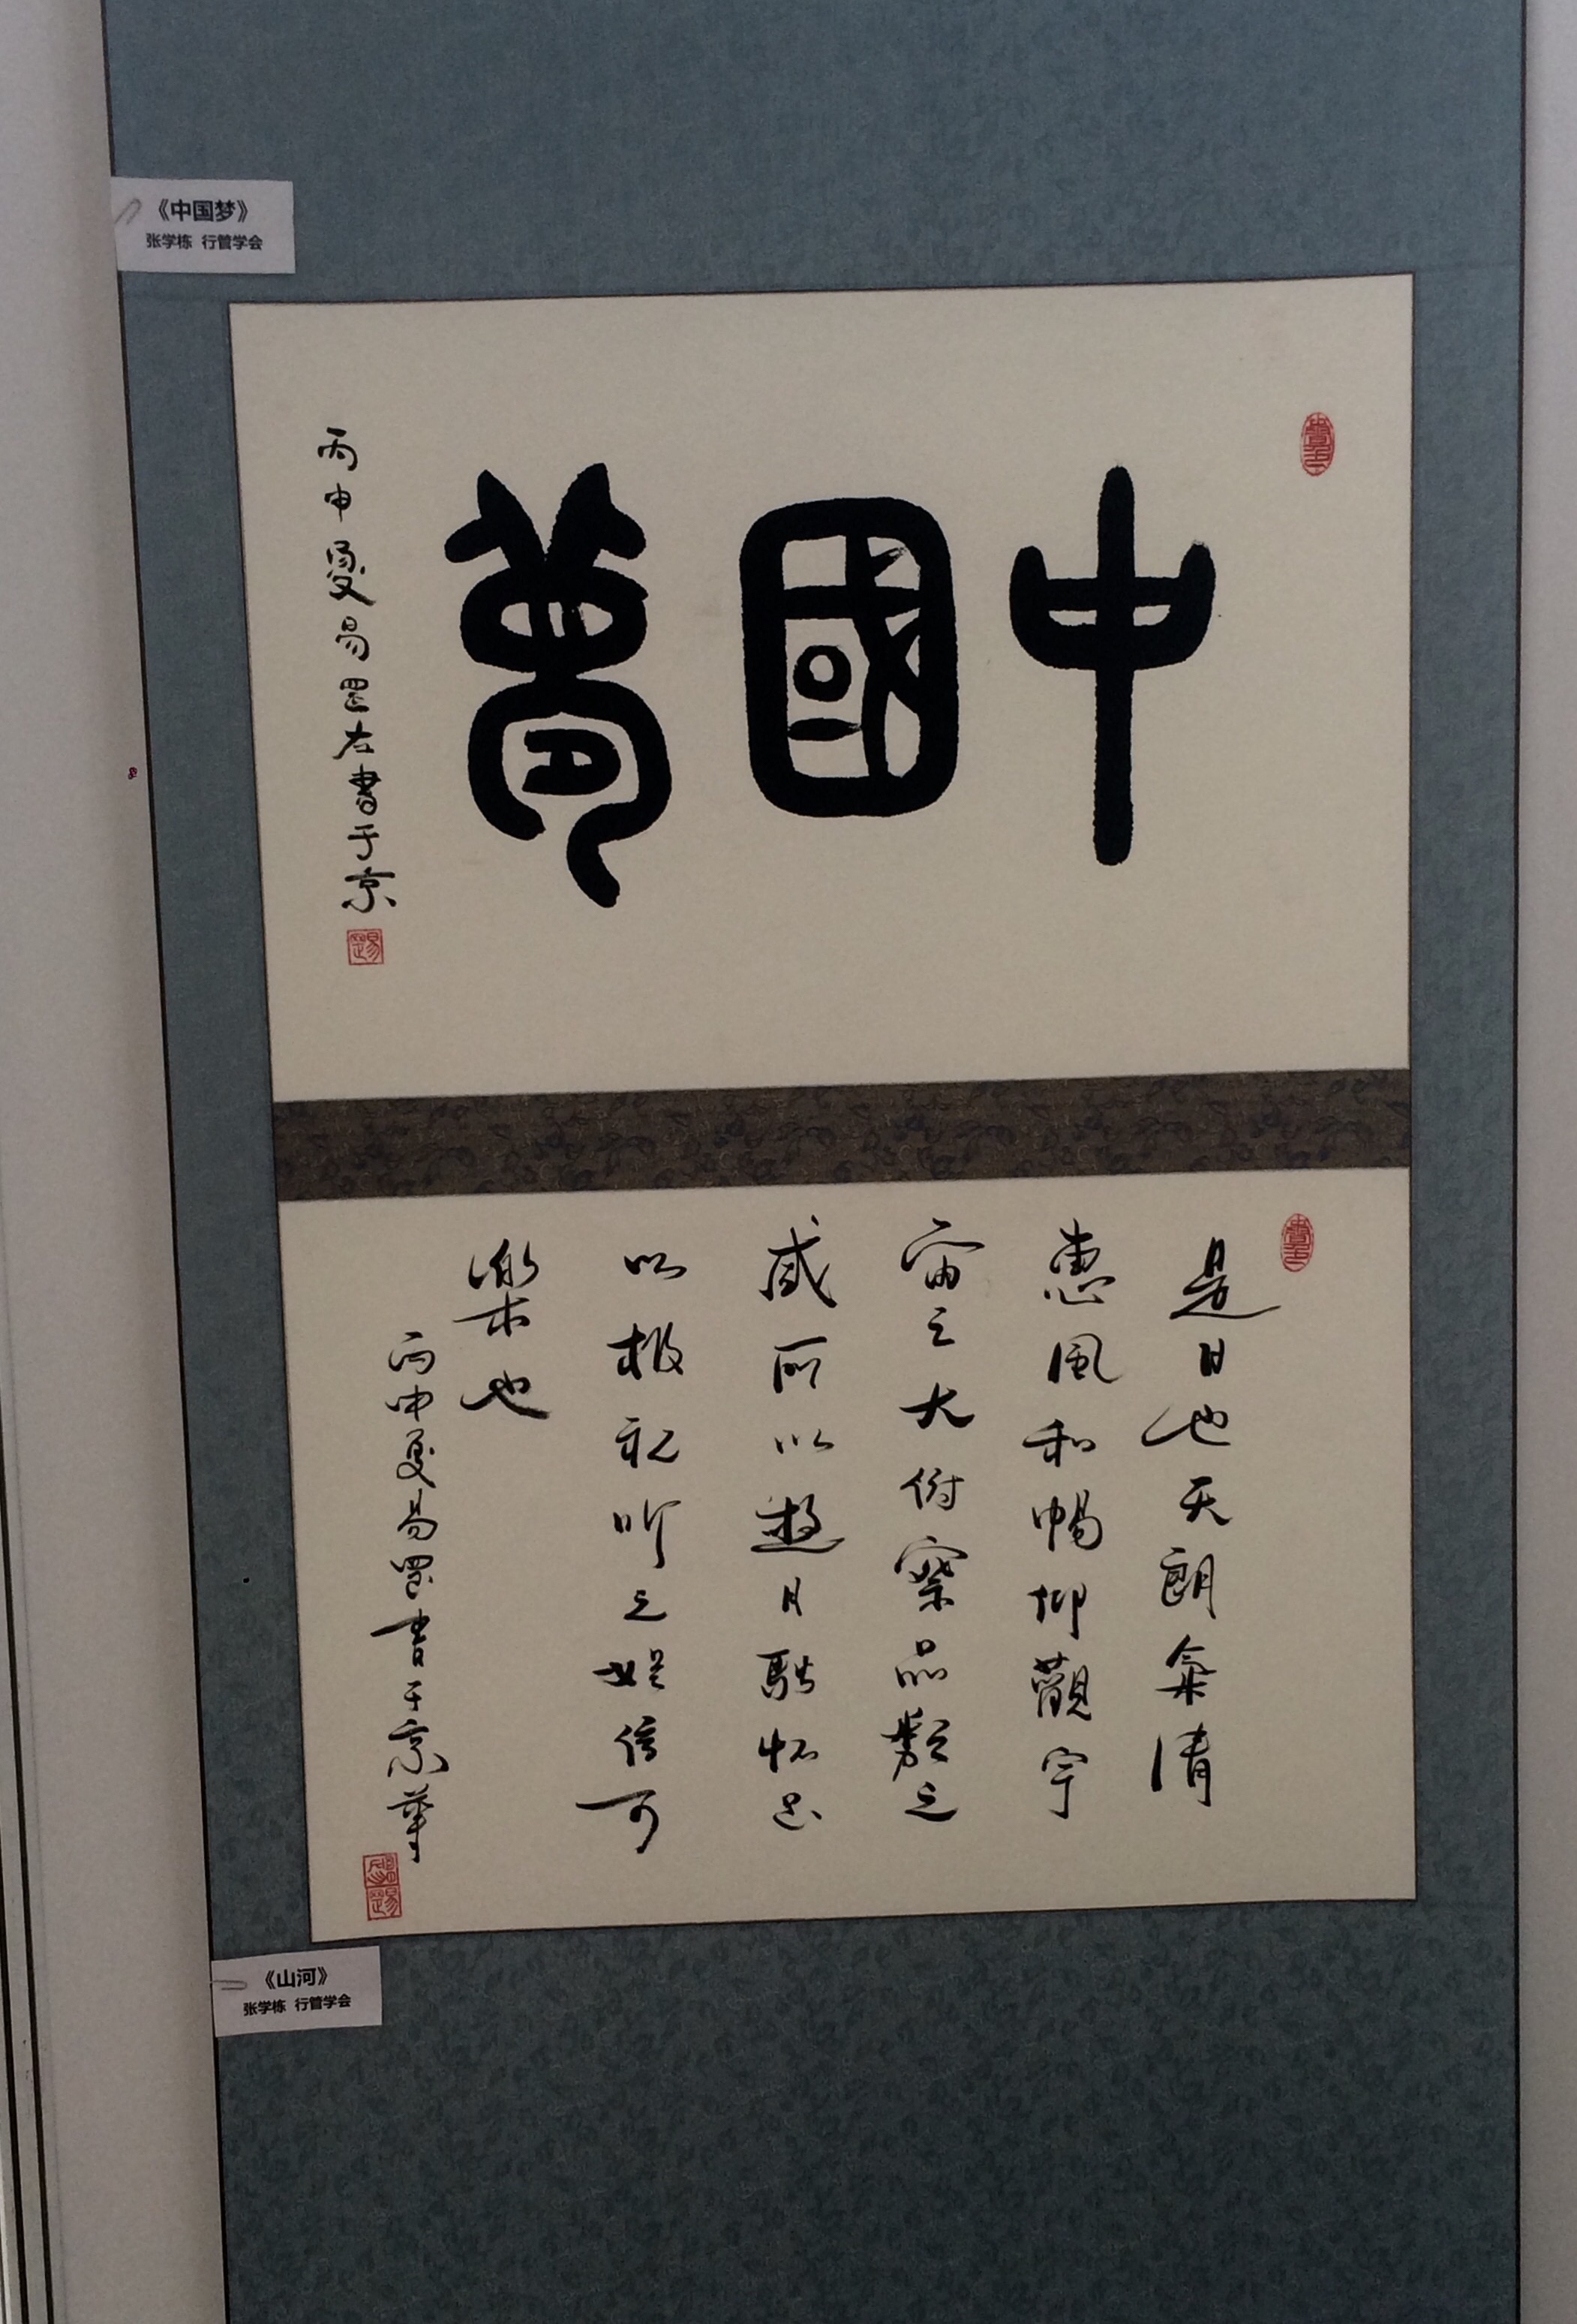 《中国梦》
张学栋 行管学会
中國夢
丙申夏易罡左書于京
是日也天朗氣清
惠風和暢仰觀宇
宙之大俯察品類之
盛所以遊目騁怀足
以极視听之娱信可
樂也
丙申夏易罡書于京華
《山河》
张学栋 行管学会